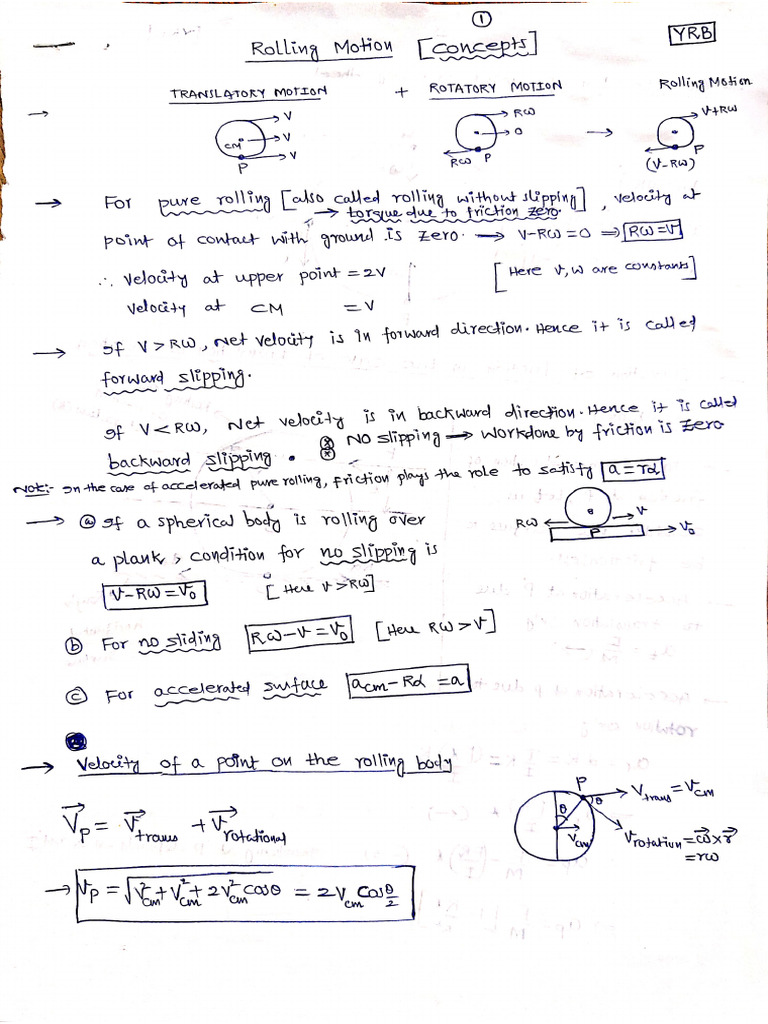 ①
YRB
Rolling Motion [concepts]
TRANSLATORY MOTION + ROTATORY MOTION Rolling Motion
→ V Rω V+Rω
CM V O →
V Rω P P
P (V-Rω)
→ For pure rolling [also called rolling without slipping], velocity at
→ torque due to friction zero.
point of contact with ground is zero. → V-Rω=0 ⇒ Rω=V
∴ velocity at upper point = 2V [Here V, ω are constants]
velocity at CM = V
→ If V > Rω, Net velocity is in forward direction. Hence it is called
forward slipping.
If V < Rω, Net velocity is in backward direction. Hence it is called
backward slipping. ⊛ No slipping → Workdone by friction is zero
⊛
Note:- In the case of accelerated pure rolling, friction plays the role to satisfy a=rα
→ ⓐ If a spherical body is rolling over Rω V
a plank, condition for no slipping is P V₀
V-Rω=V₀ [Here V>Rω]
ⓑ For no sliding Rω-V=V₀ [Here Rω>V]
ⓒ For accelerated surface a_cm-Rα=a
→ Velocity of a point on the rolling body
P V_trans=V_cm
θ θ
V⃗_P = V⃗_trans + V⃗_rotational V_cm V_rotation=ω⃗×r⃗
=rω
→ V_P = √(V²_cm+V²_cm+2V²_cm cosθ) = 2V_cm Cosθ/2